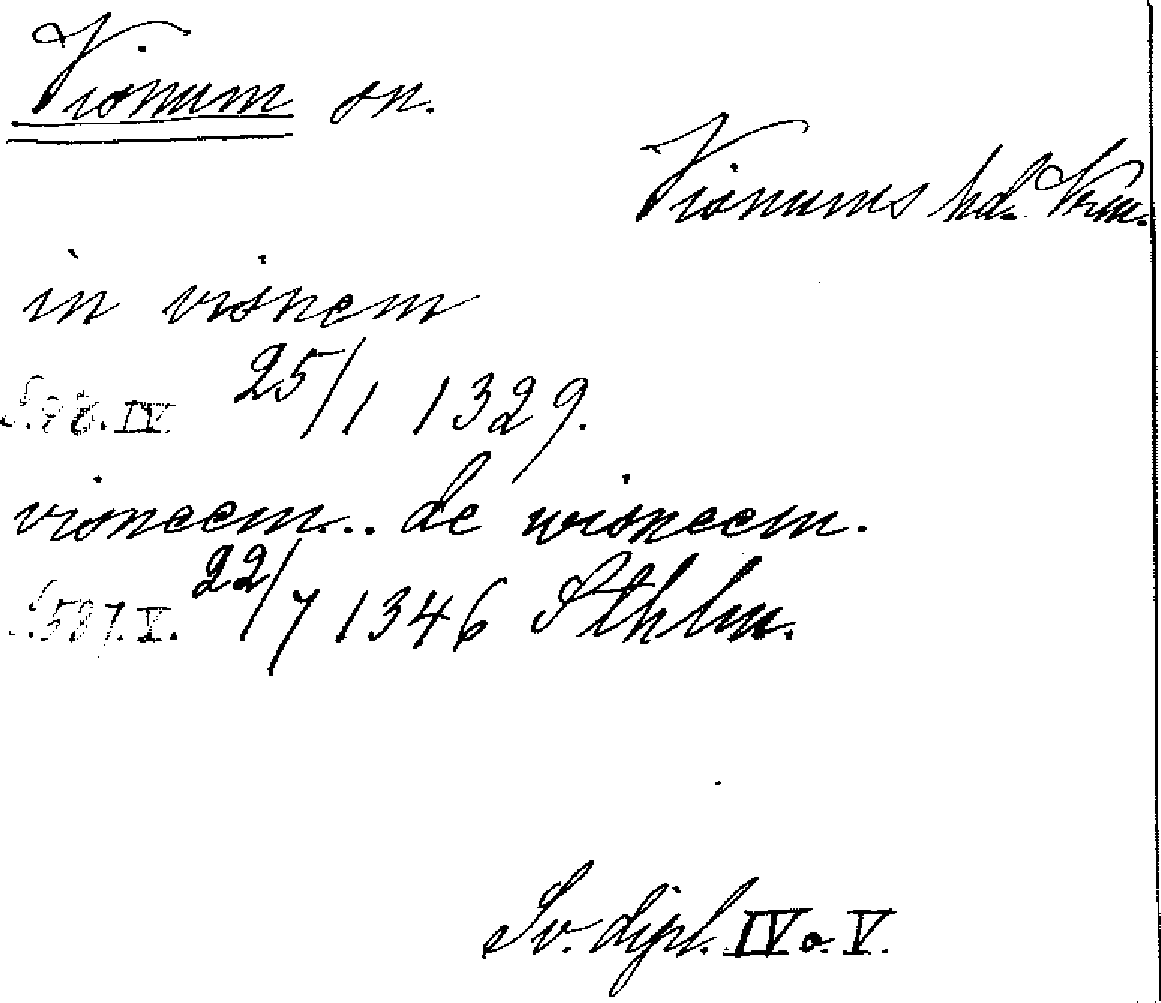 Visnum sn.
Visnums hd. Vrm.
in visnem
S. 98. IV. 25/1 1329.
visneem... de wisneem.
S. 587. V. 22/7 1346 Sthlm.
Sv. dipl. IV o. V.